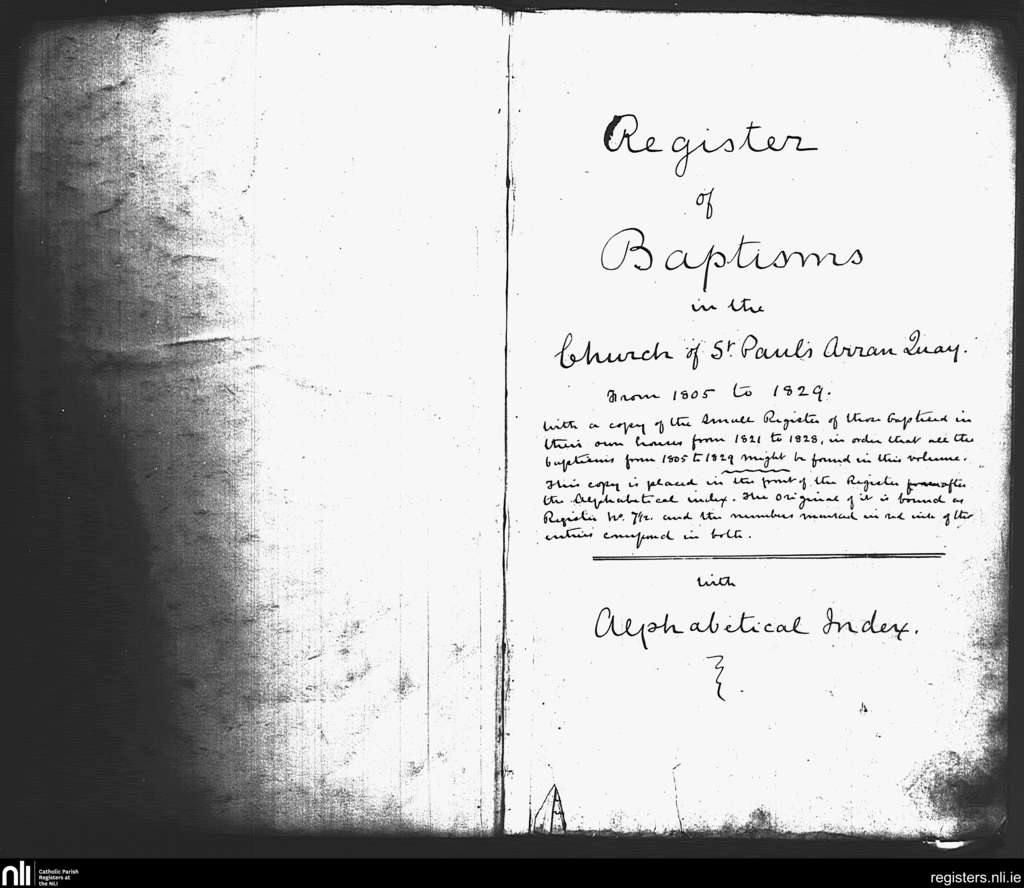 Register
of
Baptisms
in the
Church of St. Paul's Arran Quay.
From 1805 to 1829.
With a copy of the Small Register of those baptised in
their own houses from 1821 to 1828, in order that all the
baptisms from 1805 to 1829 might be found in this volume.
This copy is placed in the front of the Register after
the Alphabetical index. The Original of it is bound as
Register No. 7½. and the numbers marked in red ink of the
entries correspond in both.
with
Alphabetical Index.
nli
Catholic Parish
Registers at
the NLI
registers.nli.ie